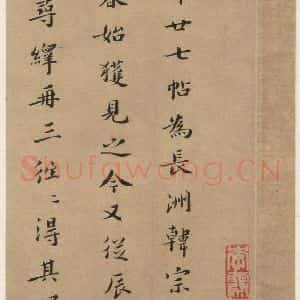 廿七帖為長洲韓宗
始獲見之今又從辰
尋繹再三往〻得其
Shufawang.CN